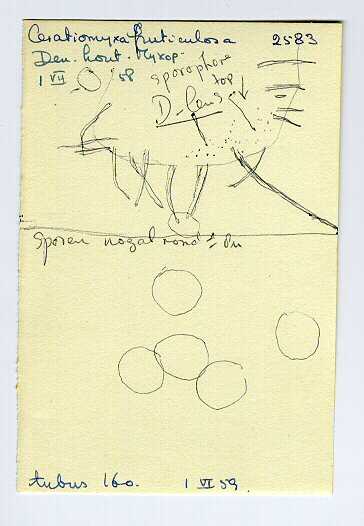 Ceratiomyxa fruticulosa 2583
Den. hout.
1 VII 58 sporophore
top
D-lens
sporen nogal rond
tubus 160. 1 VI 59.